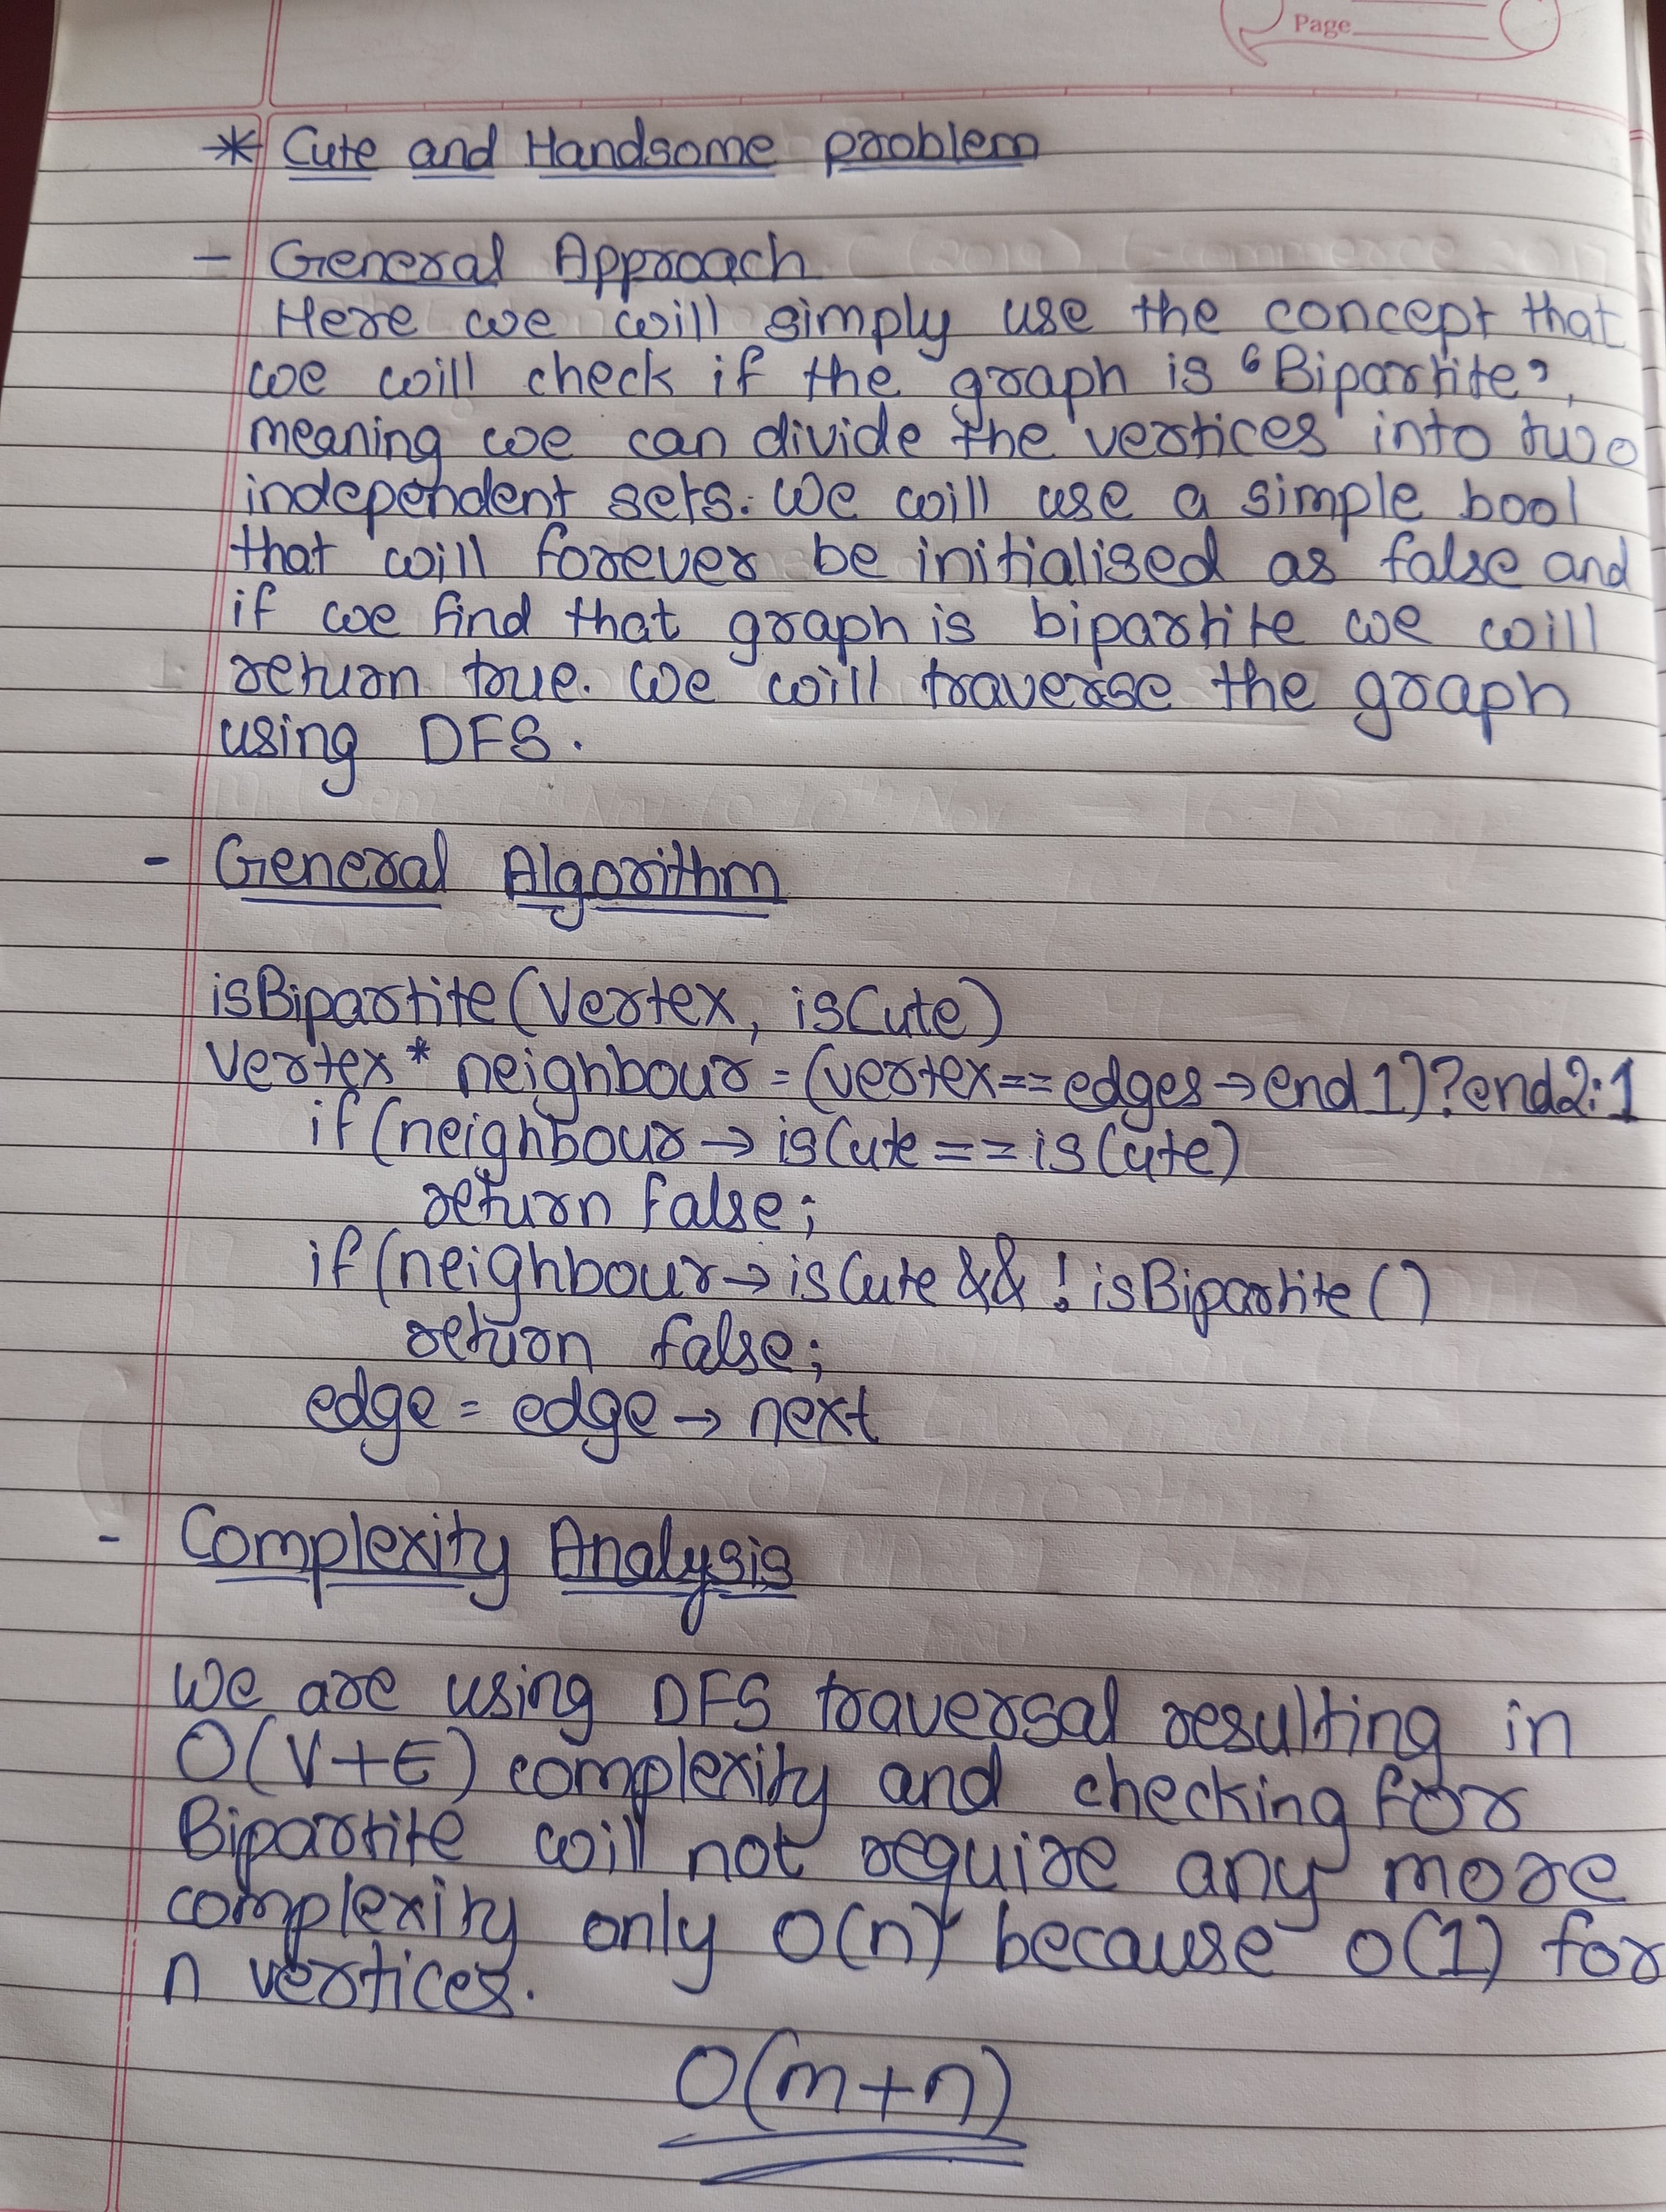 Page
* Cute and Handsome problem
- General Approach
Here we will simply use the concept that
we will check if the graph is "Bipartite",
meaning we can divide the vertices into two
independent sets. We will use a simple bool
that will forever be initialised as false and
if we find that graph is bipartite we will
return true. We will traverse the graph
using DFS.
- General Algorithm
isBipartite(Vertex, isCute)
Vertex* neighbour = (vertex==edges→end1)?end2:1
if(neighbour→isCute==isCute)
return false;
if(neighbour→isCute && !isBipartite()
return false;
edge = edge→next
- Complexity Analysis
We are using DFS traversal resulting in
O(V+E) complexity and checking for
Bipartite will not require any more
complexity only O(n) because O(1) for
n vertices.
O(m+n)